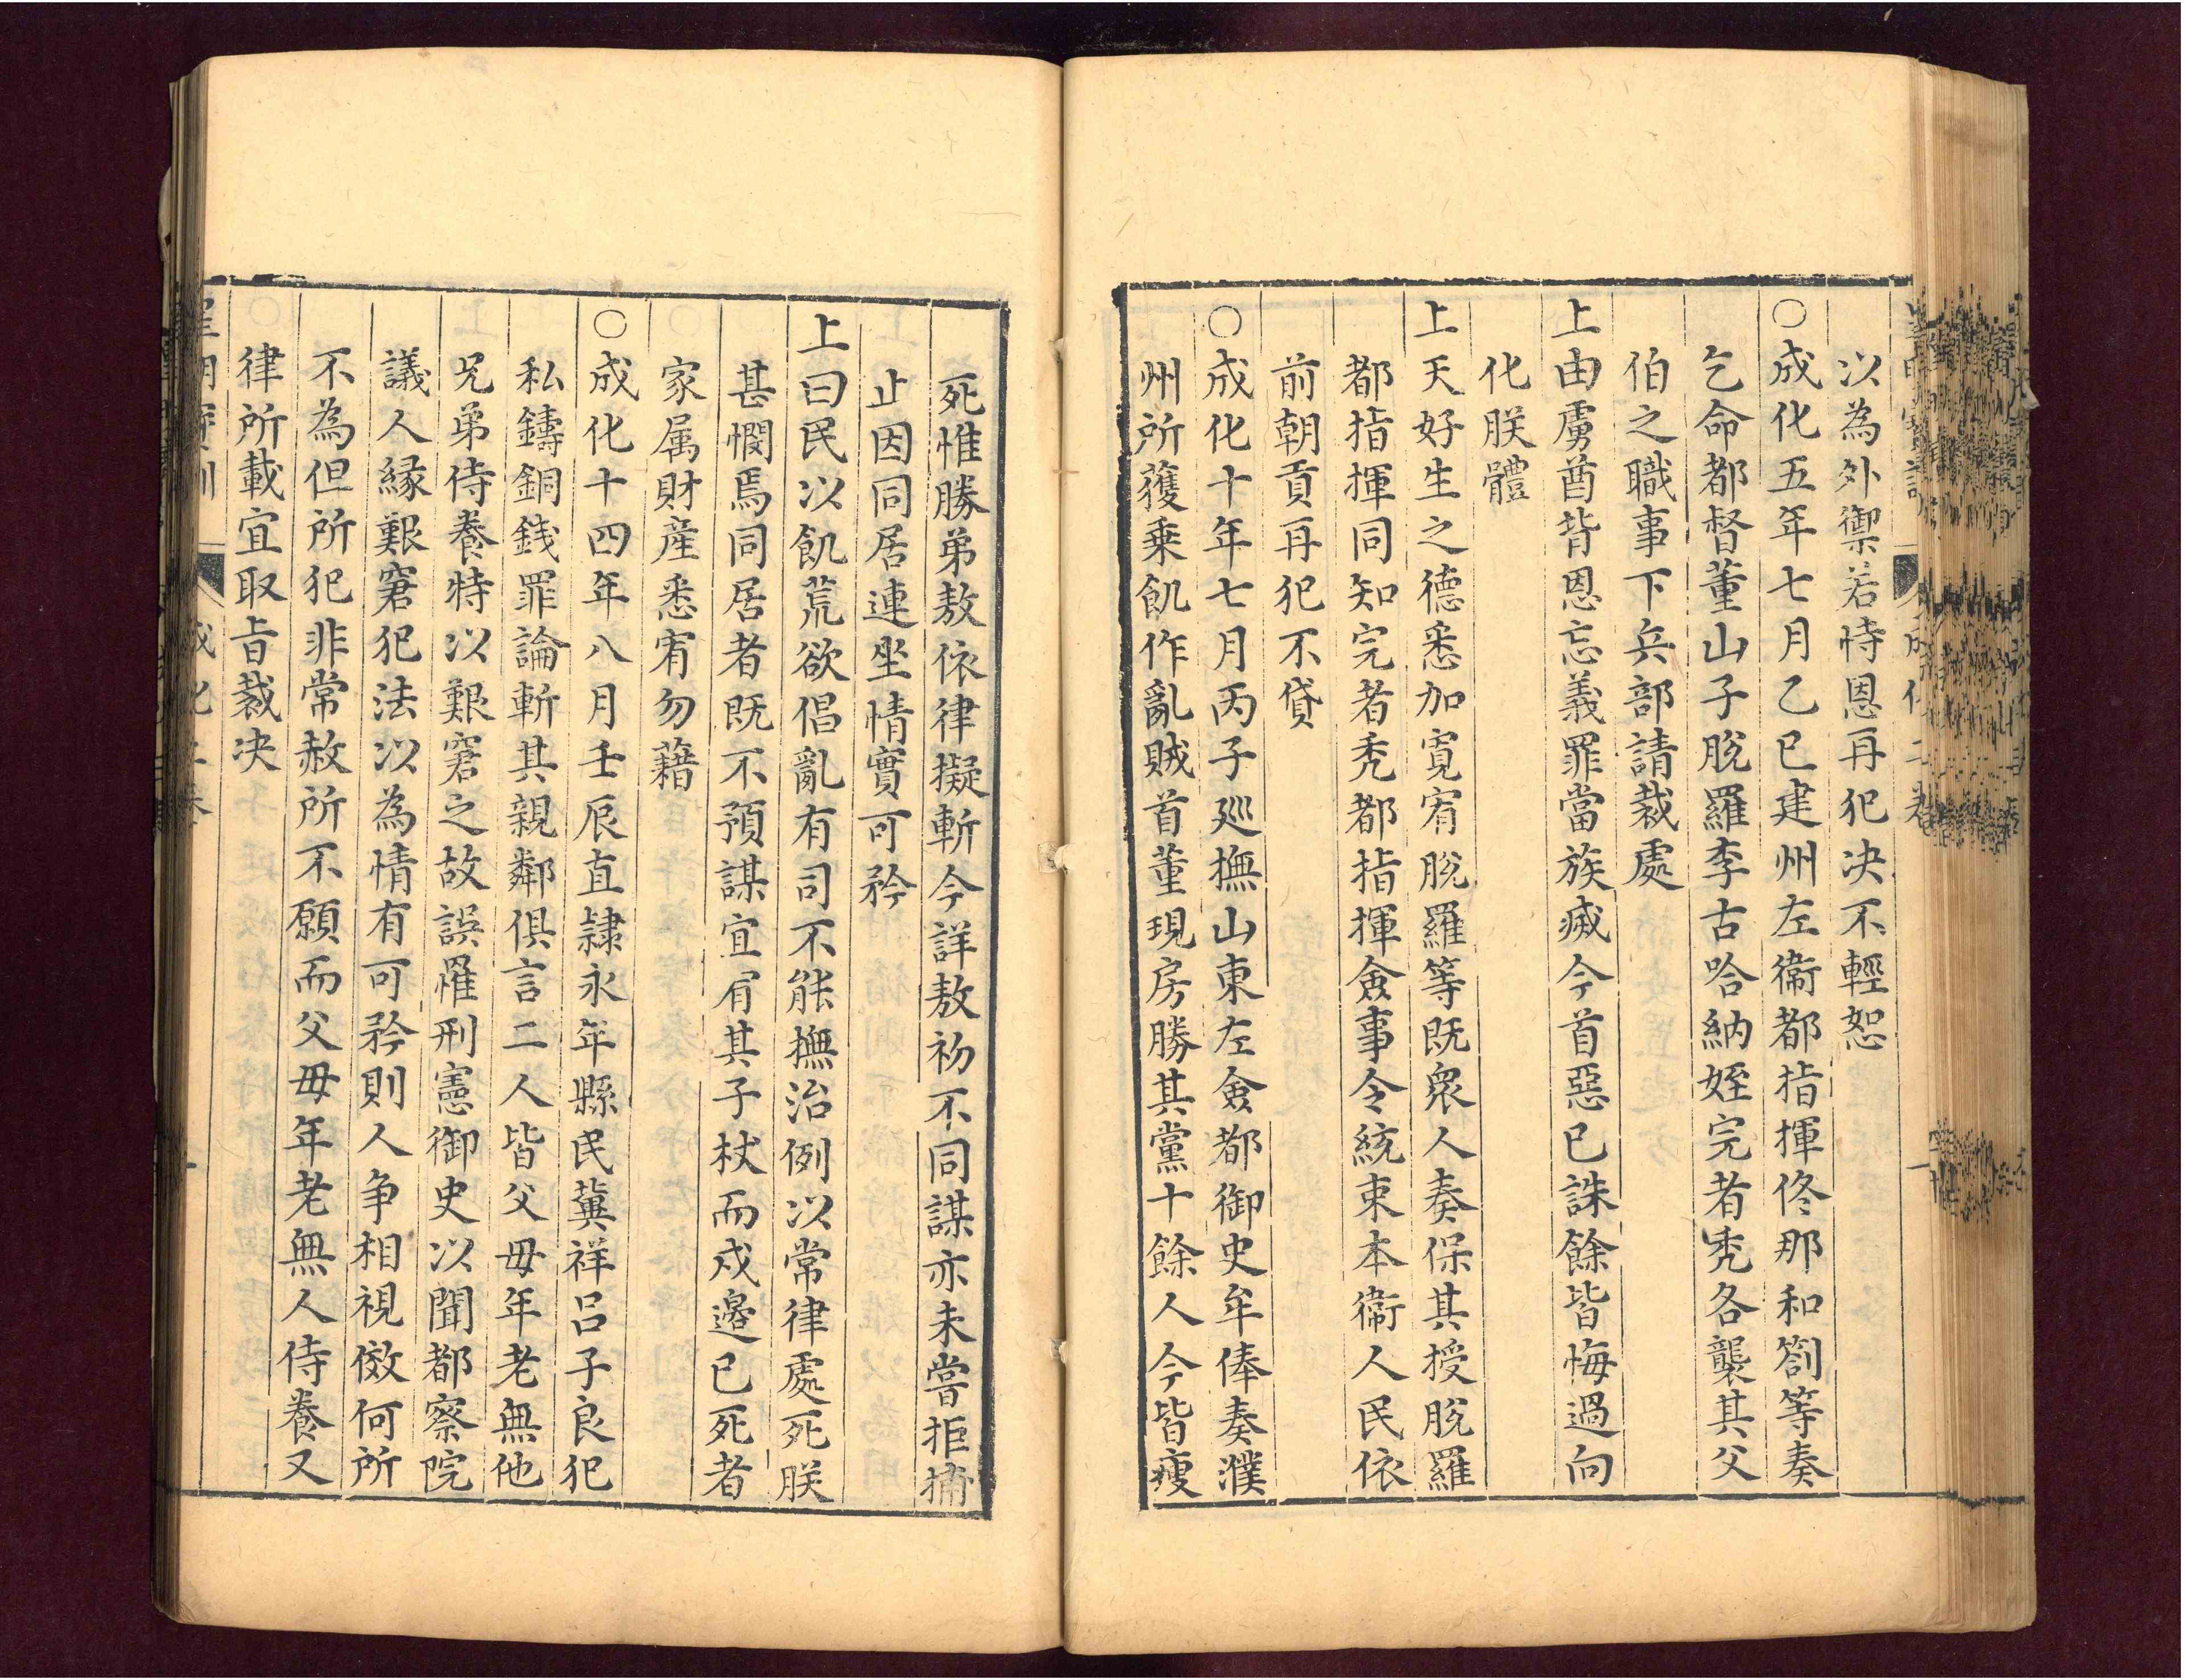 以為外禦若恃恩再犯决不輕恕
○成化五年七月乙巳建州左衛都指揮佟那和劄等奏
乞命都督董山子脫羅李古哈納姪完者禿各襲其父
伯之職事下兵部請裁處
上由虜酋背恩忘義罪當族㓕今首惡已誅餘皆悔過向
化朕體
上天好生之德悉加寬宥脫羅等既衆人奏保其授脫羅
都指揮同知完者禿都指揮僉事令統束本衛人民依
前朝貢再犯不貸
○成化十年七月丙子廵撫山東左僉都御史牟俸奏濮
州所獲乗飢作亂賊首董現房勝其黨十餘人今皆瘦
死惟勝弟敖依律擬斬今詳敖初不同謀亦未嘗拒捕
止因同居連坐情實可矜
上曰民以飢荒欲倡亂有司不能撫治例以常律處死朕
甚憫焉同居者既不預謀宜宥其子杖而戍邊已死者
家属財産悉宥勿藉
○成化十四年八月壬辰直隷永年縣民冀祥吕子良犯
私鑄銅錢罪論斬其親鄰俱言二人皆父毋年老無他
兄弟侍養特以艱窘之故誤罹刑憲御史以聞都察院
議人縁艱窘犯法以為情有可矜則人争相視傚何所
不為但所犯非常赦所不願而父毋年老無人侍養又
律所載宜取旨裁决